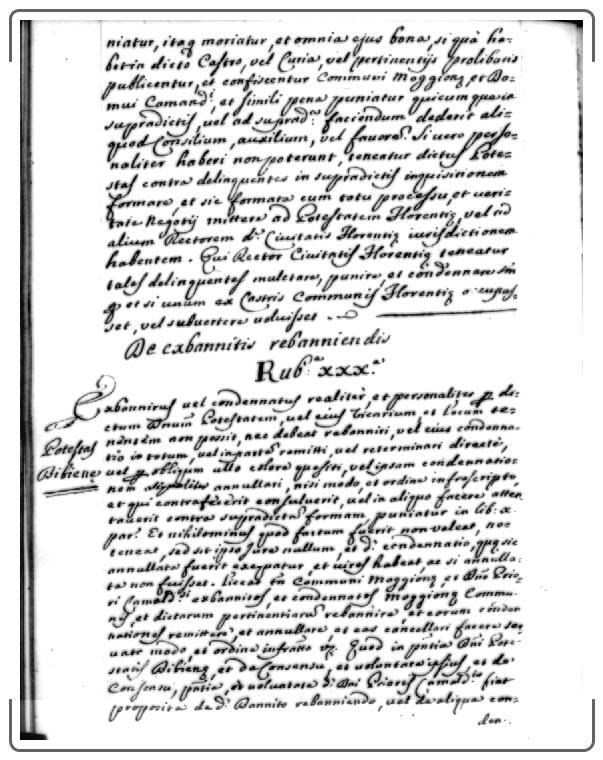 niatur, itaq moriatur, et omnia ejus bona, si quà ha-
bet in dicto Castro, vel Curia, vel pertinentijs prolibaris
publicentur, et confiscentur Communi Moggionę, et Do-
mui Camand:i, et simili pena puniatur quicumque in
supradictis, vel ad suprad:a faciendum dederit ali-
quod Consilium, auxilium, vel favorē. Si vero perso-
naliter haberi non poterunt, teneatur dictus Pote-
stas contra delinquentes in supradictis inquisitionem
formare, et sic formata cum toto processu, et veri-
tate Negotij mittere ad Potestatem Florentię, vel ad
alium Rectorem d:ę Civitatis Florentię iurisdictionem
habentem. Qui Rector Civitatis Florentię teneatur
tales delinquentes mulctare, punire et condennare sin
et si unum ex Castris Communis Florentię
set, vel subvertere voluisset.
De exbannitis rebanniendis
Rub:a xxx.a
Exbannitus vel condennatus realiter, et personaliter p di-
Potestas
Bibienę
ctum Dnum Potestatem, vel eius Vicarium et locum te-
nentem non possit, nec debeat rebanniri, vel eius condenna-
tio in totum, vel in parte remitti, vel reterminari directè,
vel p obliqum ullo colore quesiti, vel ipsam condennatio-
nem annullari, nisi modo, et ordine infrascripto,
et qui contrafecerit consuluerit, vel in aliquo facere atten
taverit contra supradictā formam puniatur in lib: x.
par: Et nihilominus quod factum fuerit non valeat, nec
teneat, sed sit ipso Jure nullum, et d:a condennatio, quę sic
annullata fuerit exeqatur, et vires habeat ac si annulla-
ta non fuisset. Liceat tn Communi Moggionę, et Dno Prio-
ri Camald:si exbannitos, et condennatos Moggionę Commu-
nis, et dictarum pertinentiarū rebannire, et eorum conden
nationes remittere, et annullare, et eas cancellari facere ser
vato modo, et ordine infratto vz. Quod in pntia Dni Pote-
statis Bibienę, et de Consensu, et voluntate ipsius, et de
Consensu, pntia, et voluntate d:i Dni Prioris Camald:sis fiat
proposita de d:o Bannito rebanniendo, vel de aliqua con-
den-.